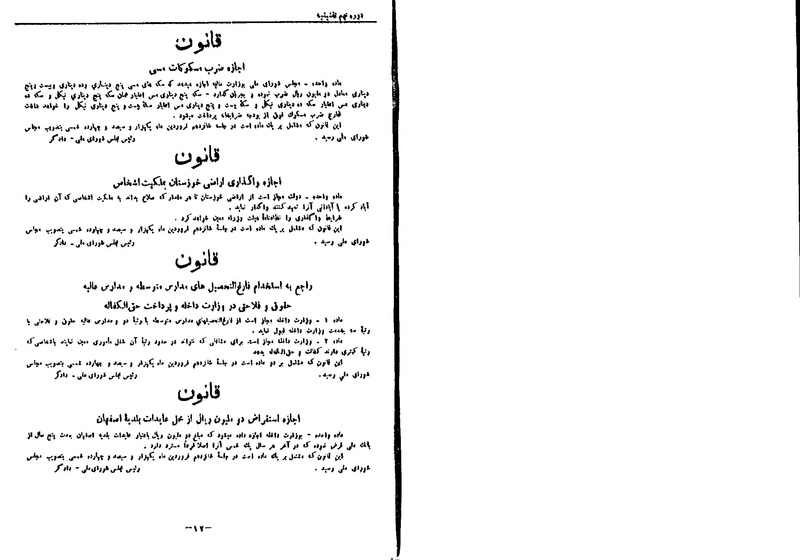 دوره نهم تقنینیه
قانون
اجازه ضرب مسکوکات مسی
ماده واحده - مجلس شورای ملی بوزارت مالیه اجازه میدهد که سکه های مسی پنج دیناری وده دیناری وبیست وپنج
دیناری معادل دو ملیون ریال ضرب نموده و بجریان گذارد - سکه پنج دیناری مس اعتبار همان سکه پنج دیناری نیکل و سکه ده
دیناری مس اعتبار سکه ده دیناری نیکل و سکهٔ بیست و پنج دیناری مس اعتبار سکهٔ بیست و پنج دیناری نیکل را خواهد داشت
مخارج ضرب مسکوک فوق از بودجه ضرابخانه پرداخت میشود .
این قانون که مشتمل بر یک ماده است در جلسه شانزدهم فروردین ماه یکهزار و سیصد و چهارده شمسی بتصویب مجلس
شورای ملی رسید . رئیس مجلس شورای ملی - دادگر
قانون
اجازه واگذاری اراضی خوزستان بملکیت اشخاص
ماده واحده - دولت مجاز است از اراضی خوزستان تا هر مقدار که صلاح بداند به ملکیت اشخاصی که آن اراضی را
آباد کرده یا آبادانی آنرا تعهد کنند واگذار نماید .
شرایط واگذاری را نظامنامهٔ هیئت وزراء معین خواهد کرد .
این قانون که مشتمل بر یک ماده است در جلسهٔ شانزدهم فروردین ماه یکهزار و سیصد و چهارده شمسی بتصویب مجلس
شورای ملی رسید . رئیس مجلس شورای ملی - دادگر
قانون
راجع به استخدام فارغ‌التحصیل های مدارس متوسطه و مدارس عالیه
حقوق و فلاحتی در وزارت داخله و پرداخت حق‌الکفاله
ماده ۱ - وزارت داخله مجاز است از فارغ‌التحصیلهای مدارس متوسطه با رتبهٔ دو و مدارس عالیه حقوق و فلاحتی با
رتبهٔ سه بخدمت وزارت داخله قبول نماید .
ماده ۲ - وزارت داخله مجاز است برای مشاغلی که نتواند در حدود رتبهٔ آن شغل مأموری معین نماید باشخاصی که
رتبهٔ کمتری دارند کفالت و حق‌الکفاله بدهد
این قانون که مشتمل بر دو ماده است در جلسهٔ شانزدهم فروردین ماه یکهزار و سیصد و چهارده شمسی بتصویب مجلس
شورای ملی رسید . رئیس مجلس شورای ملی - دادگر
قانون
اجازه استقراض دو ملیون وریال از محل عایدات بلدیهٔ اصفهان
ماده واحده - بوزارت داخله اجازه داده میشود که مبلغ دو ملیون وریال باعتبار عایدات بلدیه اصفهان بمدت پنج سال از
بانک ملی قرض نموده که در آخر هر سال یک خمس آنرا اصلا و فرعاً مسترد دارد .
این قانون که مشتمل بر یک ماده است در جلسهٔ شانزدهم فروردین ماه یکهزار و سیصد و چهارده شمسی بتصویب مجلس
شورای ملی رسید . رئیس مجلس شورای ملی - دادگر
-۱۲-